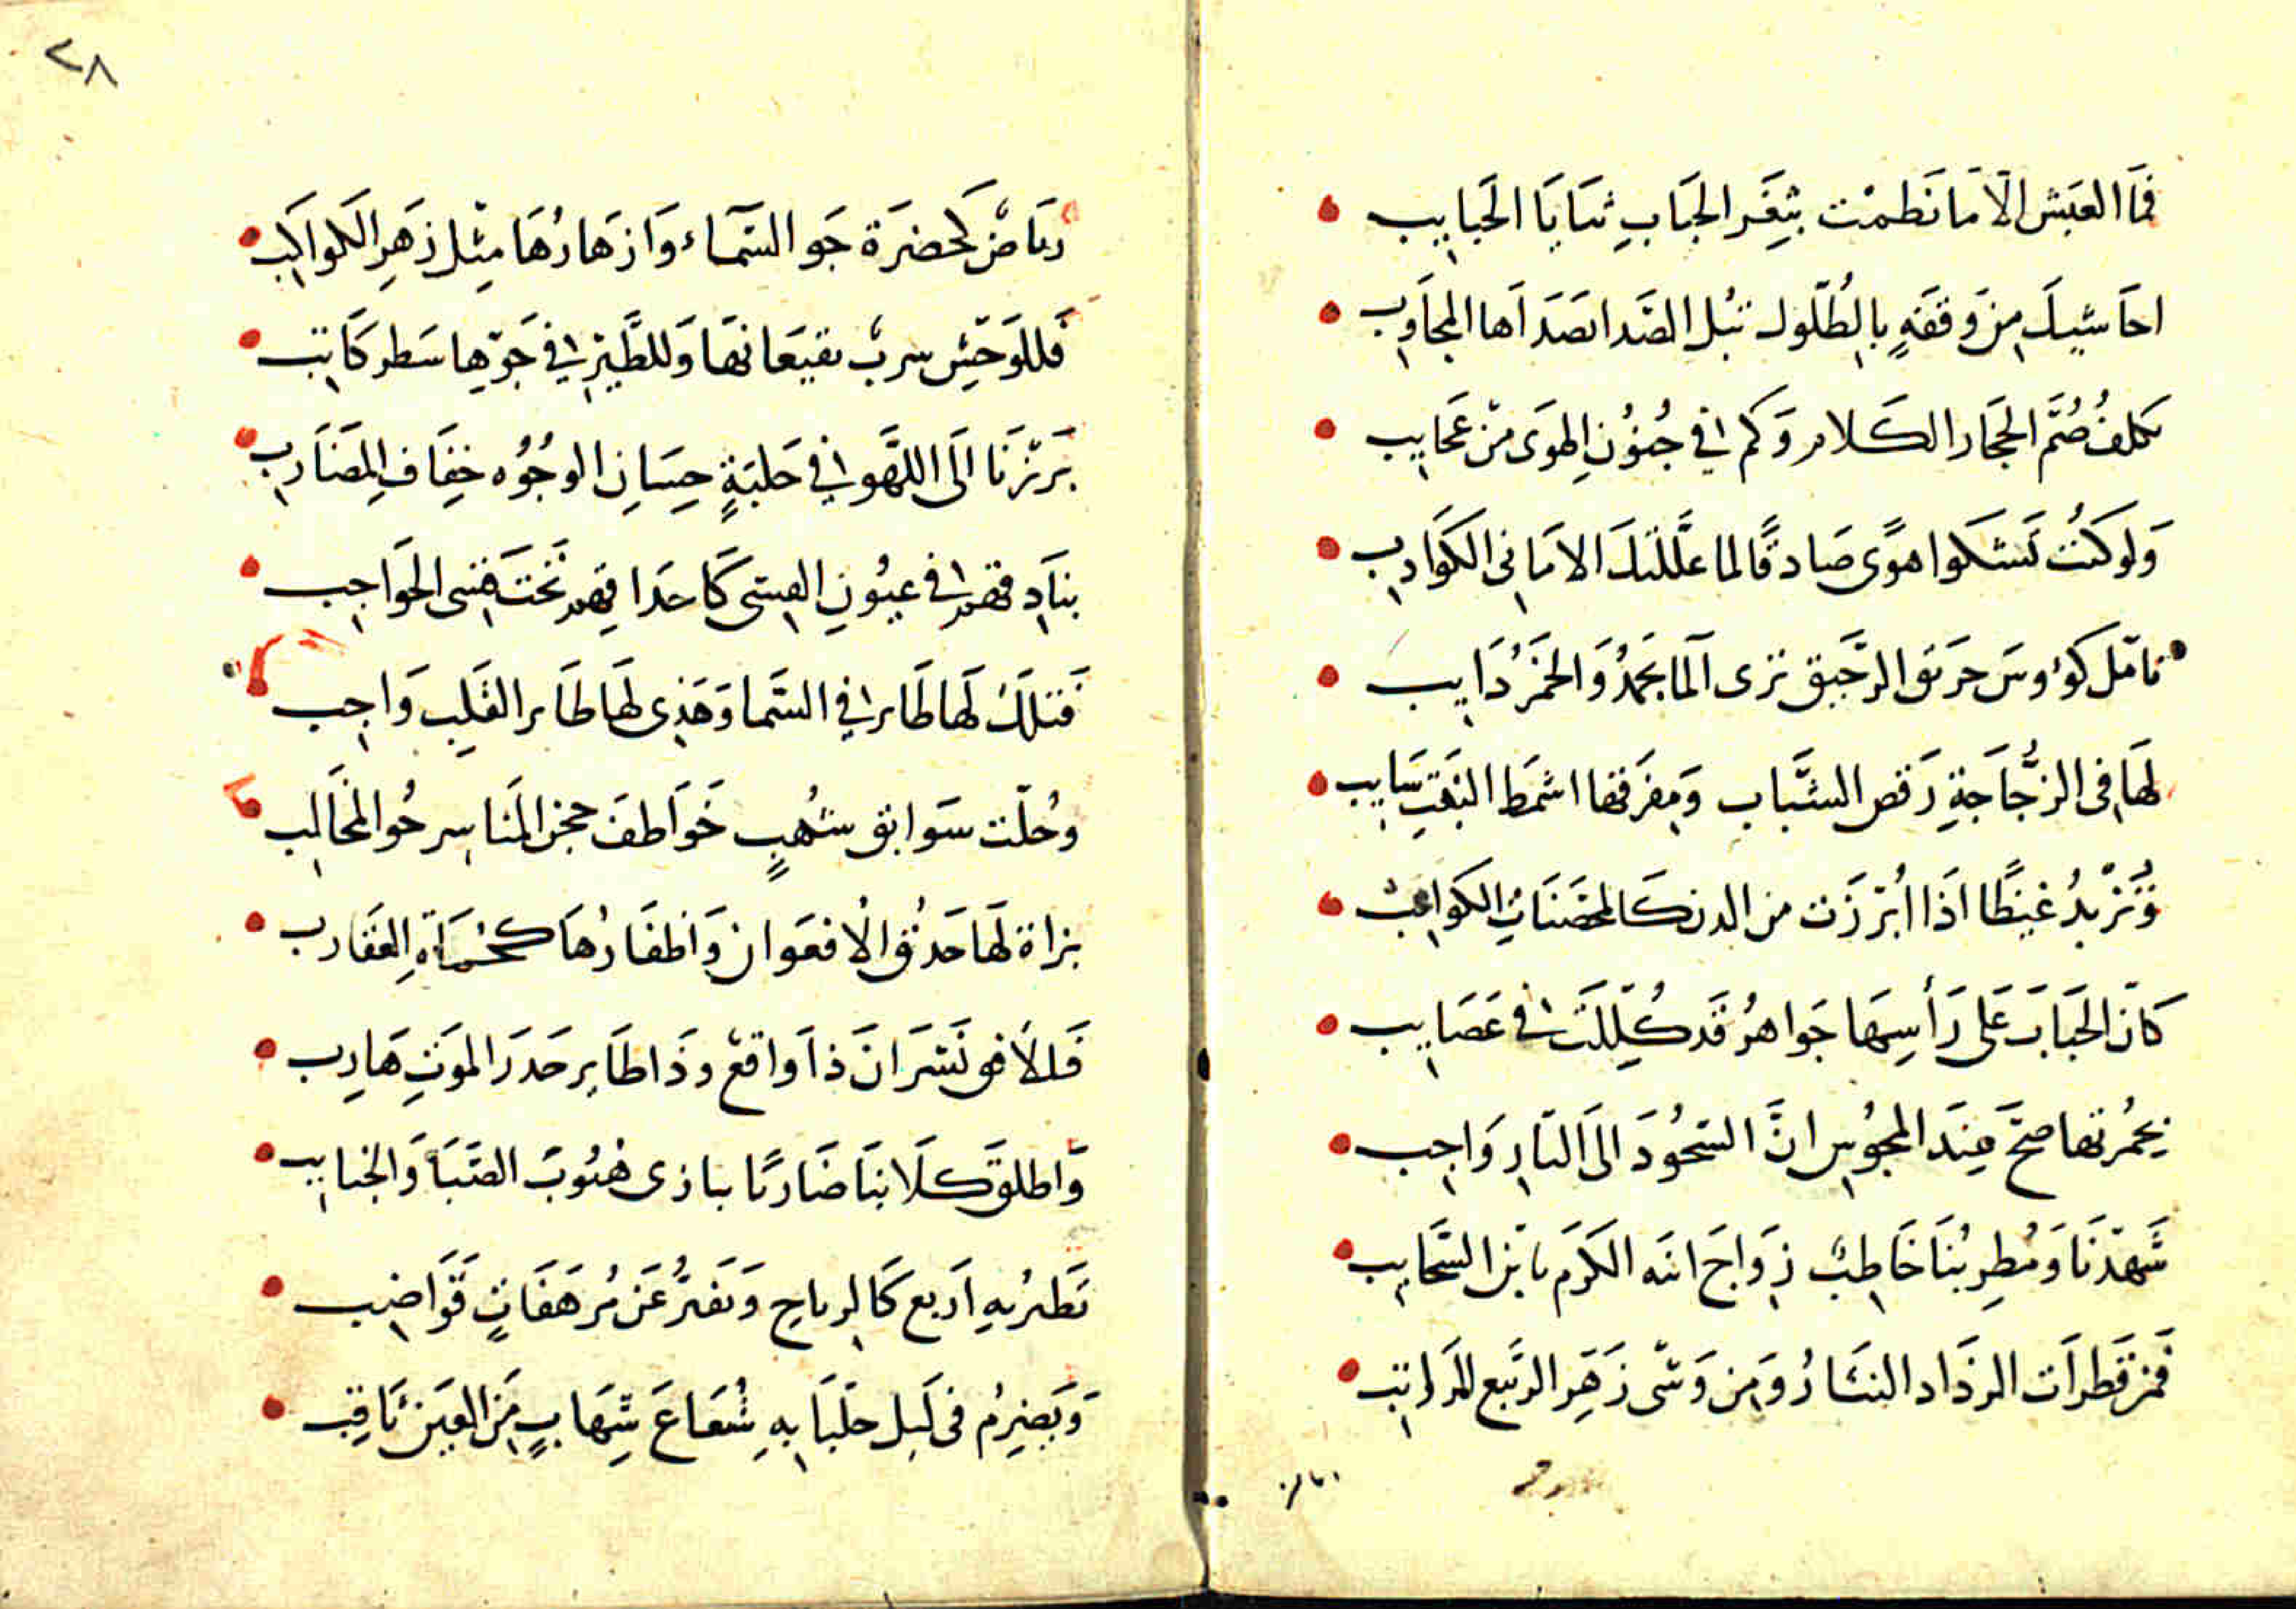 فَمَا العَيش الّا مَا نَظمْت بثَغَر الحَبَابِ ثنَايَا الحَبَايِب
احَاشيكَ مِن وَقفَةٍ بالطُلّول تبُل الصَدا بصَدَاها المجَاوِب
تكلفُ صُمَّ الحجَار الكَلام وَكم في جُنوُنِ الهوَى مِنْ عَجَايِب
وَلَو كنُت تَشكوا هوًى صَادقًا لما علَّلتكَ الامَاني الكوَاذِب
تامّل كوُوسَ حرَيق الرّحَيق ترَى الما يَجمدُ وَالخمَرُ ذَايِب
لهَا في الزُّجَاجَةِ رَقص الشَّبَاب وَمفرَقهَا اشمَط اللَّونِ شَايِب
وَتزْبدُ غيَظًا اذَا ابُرزَت من الدن كَالمحصَنَاتِ الكوَاعِب
كَانّ الحَبَابَ عَلى رَأسِهَا جوَاهرُ قَد كُلِّلَت في عَصَايِب
بحمُرتهَا صَحَّ عِندَ المجوُسِ انَّ السّجُودَ الَى النّارِ وَاجِب
شَهِدْنَا وَمُطرِبُنَا خَاطِبٌ زِوَاجَ ابنَه الكَرَم بابْن السّحَايِب
فَمِن قَطرَات الرذَاذ النثَارُ وَمِن وَشْى زَهَرِ الرّبيع المرَاتِب
رياض
٢٨
ريَاضٌ كَخضرَة جَو السّمَاء وَازهَارُهَا مِثل زهَرِ الكوَاكِب
فَللوَحَشِ سربٌ بقيعَانهَا وَللطَّيرِ في جَوّهِا سَطر كَاتِب
بَرَزْنَا الَى اللّهَو في حَلبَةٍ حِسَانِ الوجُوُه خِفَافِ المضَارِب
بنَادقهم في عيُونِ القسِى كَاحدَاقهم تَحَت قسِى الحوَاجِب
فَتلكَ لَها طَاير في السّمَا وَهَذِى لهَا طَاير القَلبِ وَاجِب
وحُلّت سَوَابق شُهبٍ خَوَاطفَ حجن المنَاسِر حُوِ المخَالِب
بزاة لَها حَدقُ الأفعَوان وَاظفَارُهَا كحُمَاةِ العَقَارِب
فَلِلأفق نَسْرَان ذا وَاقعٌ وذَا طَايِر حَذرَ الموَتِ هَارِب
وَاطلَق كلَابنَا ضَاريًا يبَارى هُبُوبَ الصَّبَا وَالجنايِب
تَطيرُ بهِ اَربع كَالرياح وَيَفترُّ عَن مُرهَفَاتٍ قَوَاضِب
وَيَضِرمُ في لَيل جلَبَابهِ شُعَاعَ شِهَابٍ مِن العيَن ثَاقِب